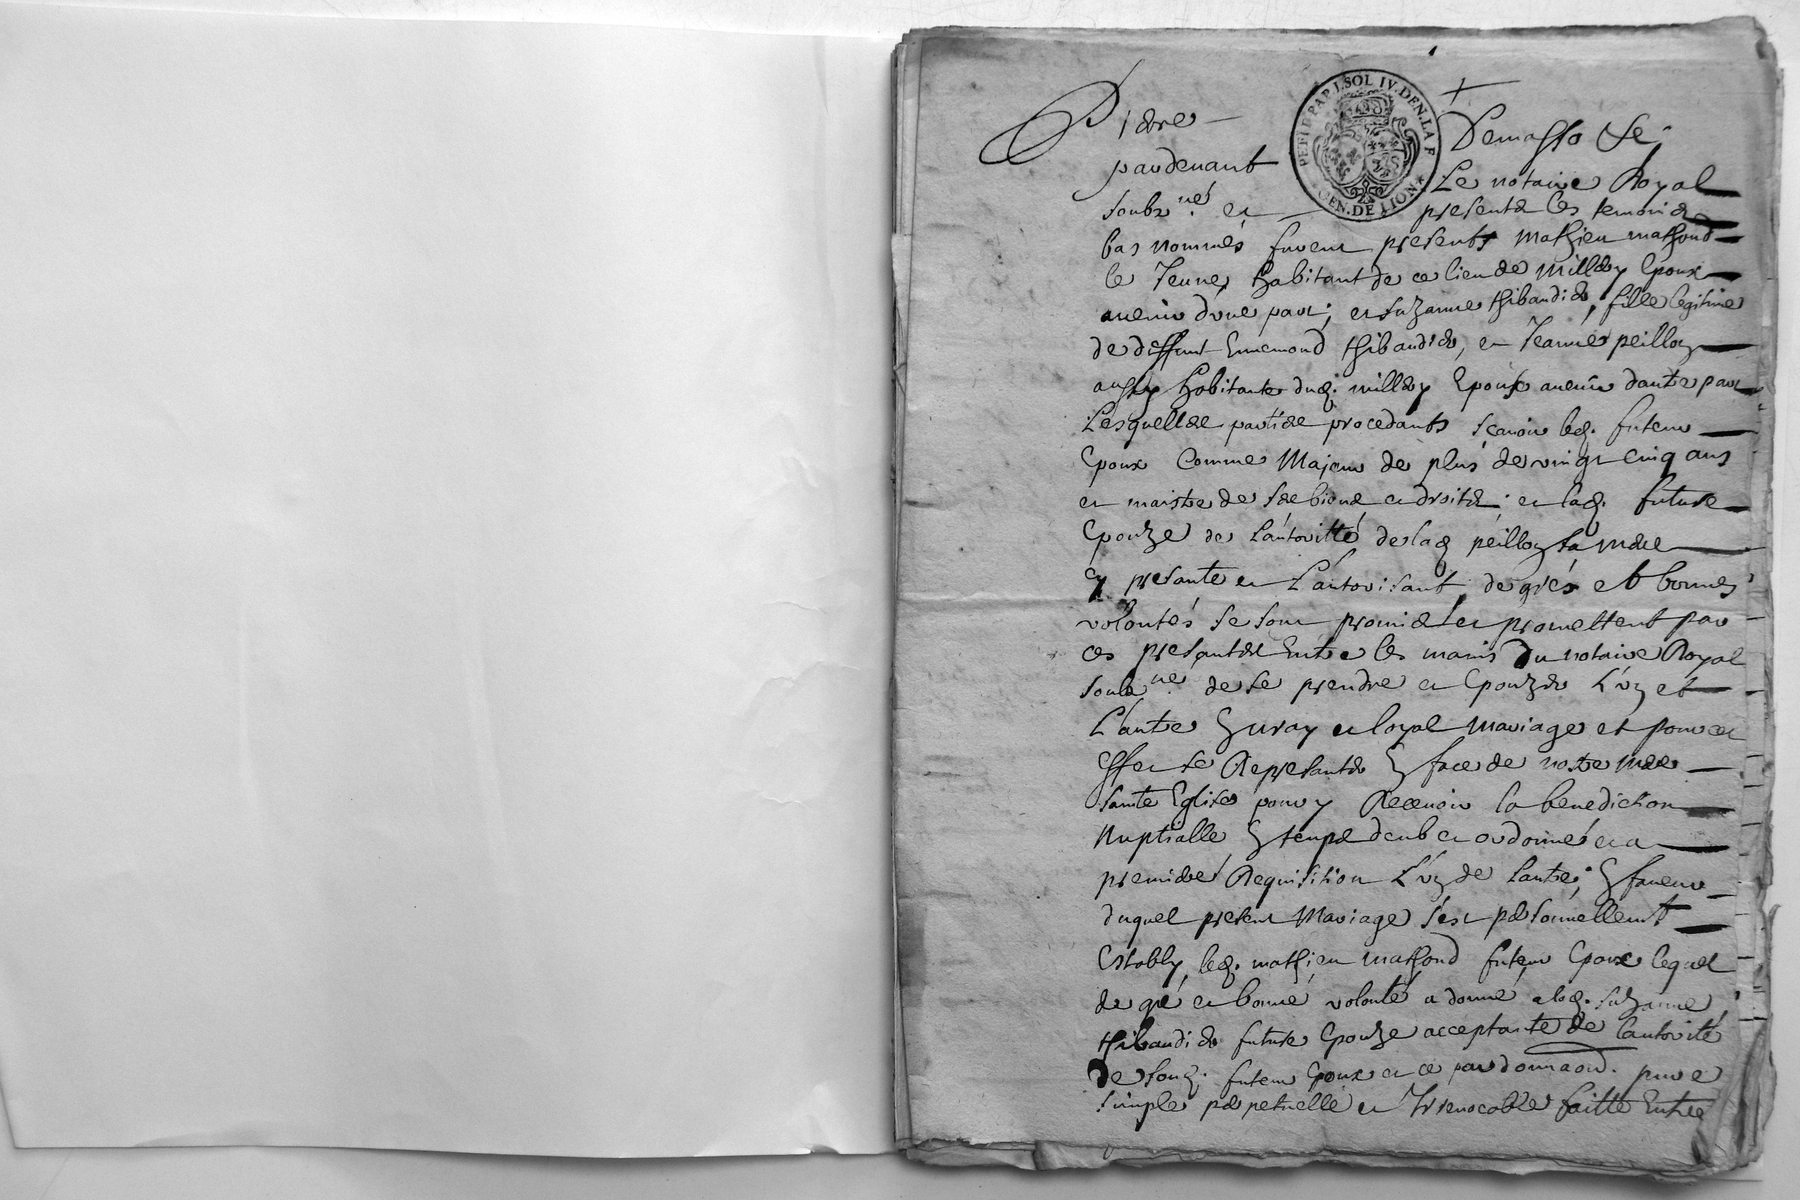 PETIT PAP. 1. SOL IV. DEN. LA F
GEN. DE LION
pardenant
Le notaire Royal
soubz.né et presents les temoins
bas nommés furent presents mathieu mathoud
le Jeune habitant de ce lieu de millery Epoux
avenir d'une part; et suzanne thibaudier, fille legitime
de deffunt Ennemond thibaudier, et Jeanne peillon
aussy habitante dud. millery Epouse avenir dautre part
Lesquelles parties procedants sçavoir led. futeur
Epoux comme Majeur de plus de vingt cinq ans
et maistre de ses biens et droits; et lad. future
Epouze de L'autoritté de lad peillon sa mere
Ey presante et L'autorisant, de grés et bonnes
volontés se sont promis et promettent par
ces presantes Entre les mains du notaire Royal
soub.né de se prendre et Epouzer L'un et
L'autre En vray et loyal mariage et pour cet
Effet se Represanter En face de nostre mere
sainte Eglise pour y Recevoir la benediction
Nuptialle En temps deub et ordonné et a
premiere Requisition L'un de lautre; En faveur
duquel present Mariage s'est personnellemt
Estably led. mathieu mathoud futeur Epoux lequel
de gré et bonne volonté a donné a lad. suzanne
thibaudier future Epouze acceptante de lautorité
De sond. futeur Epoux et ce par donnaon. pure
simple perpetuelle et Irrevocable faitte Entre